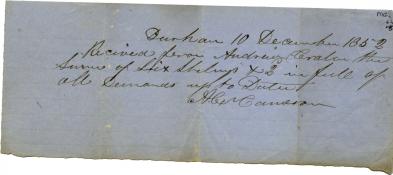 Durham 10 December 1852
Recived from Andrew the
Sume of Six Shilings & 2 in full of
all demands up to Date